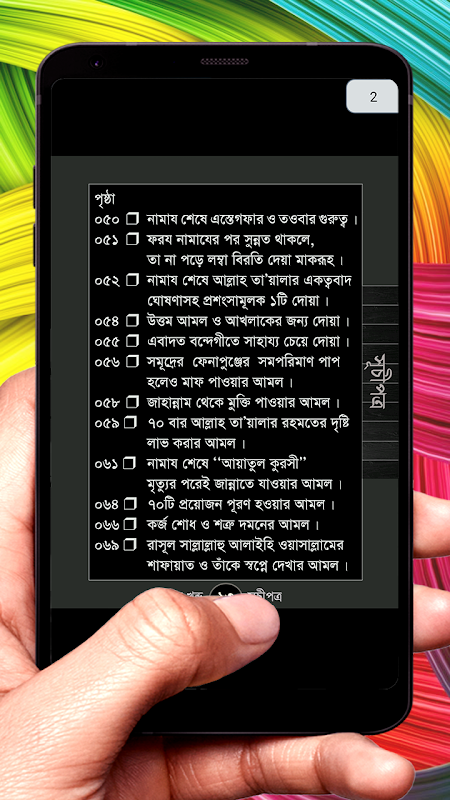 2
পৃষ্ঠা
০৫০ ❐ নামায শেষে এস্তেগফার ও তওবার গুরুত্ব ।
০৫১ ❐ ফরয নামাযের পর সুন্নত থাকলে,
তা না পড়ে লম্বা বিরতি দেয়া মাকরূহ ।
০৫২ ❐ নামায শেষে আল্লাহ তা’য়ালার একত্ববাদ
ঘোষণাসহ প্রশংসামূলক ১টি দোয়া ।
০৫৪ ❐ উত্তম আমল ও আখলাকের জন্য দোয়া ।
০৫৫ ❐ এবাদত বন্দেগীতে সাহায্য চেয়ে দোয়া ।
০৫৬ ❐ সমূদ্রের ফেনাপুঞ্জের সমপরিমাণ পাপ
হলেও মাফ পাওয়ার আমল ।
০৫৮ ❐ জাহান্নাম থেকে মুক্তি পাওয়ার আমল ।
০৫৯ ❐ ৭০ বার আল্লাহ তা’য়ালার রহমতের দৃষ্টি
লাভ করার আমল ।
০৬১ ❐ নামায শেষে ‘‘আয়াতুল কুরসী’’
মৃত্যুর পরেই জান্নাতে যাওয়ার আমল ।
০৬৪ ❐ ৭০টি প্রয়োজন পূরণ হওয়ার আমল ।
০৬৬ ❐ কর্জ শোধ ও শত্রু দমনের আমল ।
০৬৯ ❐ রাসূল সাল্লাল্লাহু আলাইহি ওয়াসাল্লামের
শাফায়াত ও তাঁকে স্বপ্নে দেখার আমল ।
সূচীপত্র
সূচীপত্র